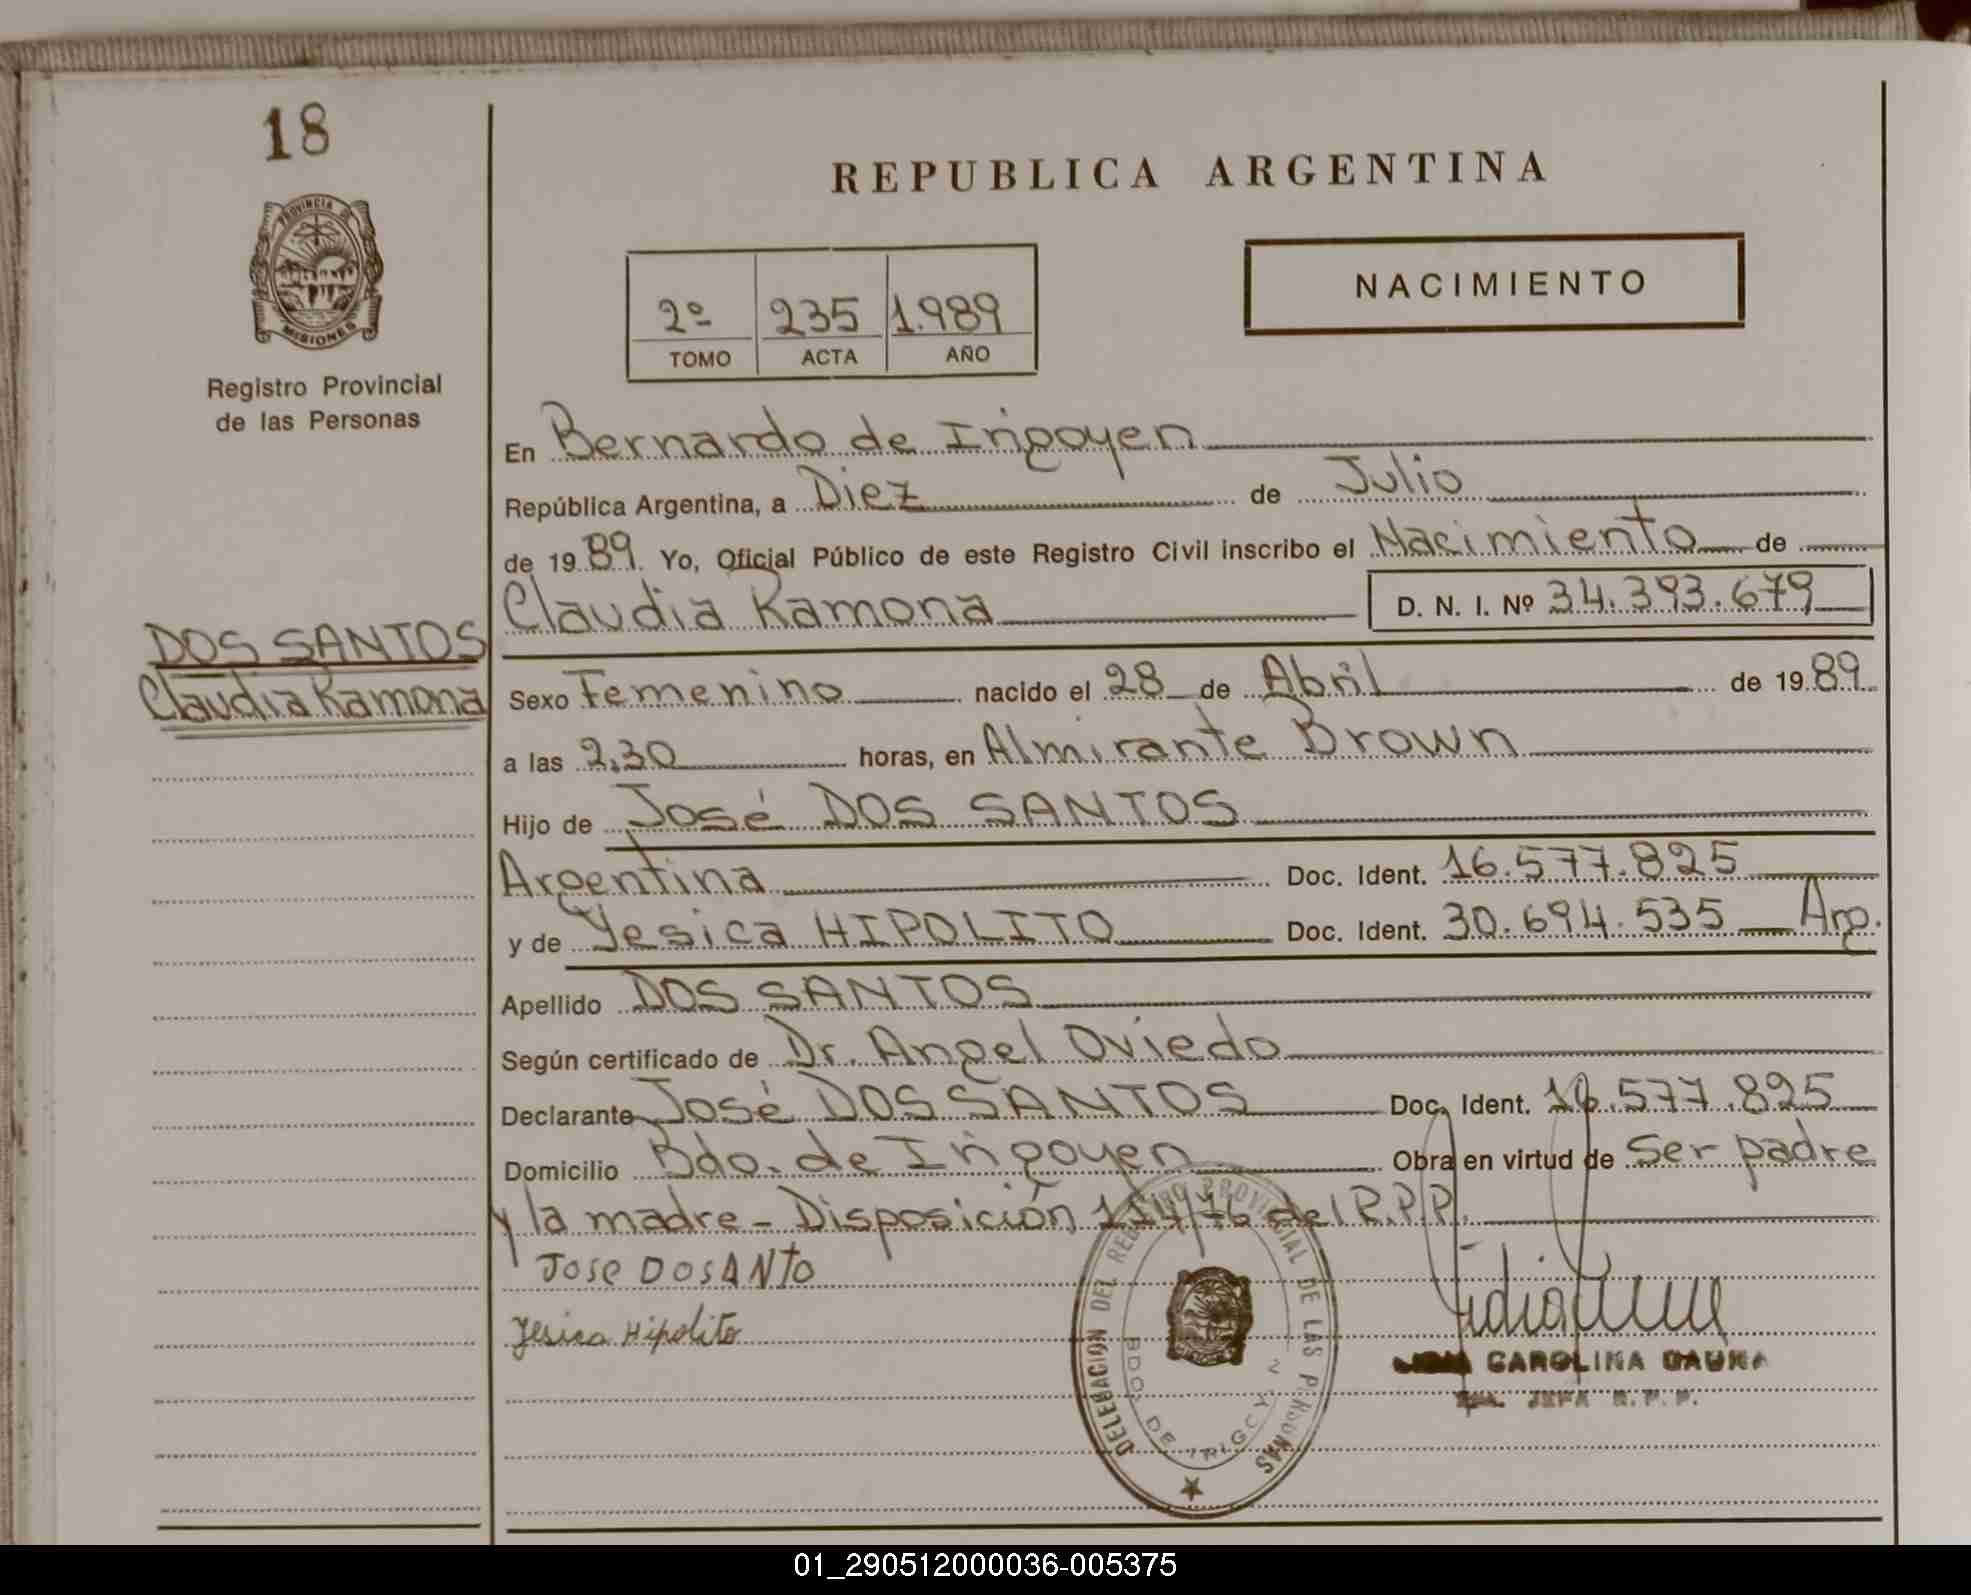 18
PROVINCIA DE
MISIONES
Registro Provincial
de las Personas
DOS SANTOS
Claudia Ramona
REPUBLICA ARGENTINA
2º 235 1.989
TOMO ACTA AÑO
NACIMIENTO
En Bernardo de Irigoyen
República Argentina, a Diez de Julio
de 1989. Yo, Oficial Público de este Registro Civil inscribo el Nacimiento de
Claudia Ramona D. N. I. Nº 34.393.679
Sexo Femenino nacido el 28 de Abril de 1989
a las 2,30 horas, en Almirante Brown
Hijo de José DOS SANTOS
Argentina Doc. Ident. 16.577.825
y de Yesica HIPOLITO Doc. Ident. 30.694.535 Arg.
Apellido DOS SANTOS
Según certificado de Dr. Angel Oviedo
Declarante José DOS SANTOS Doc. Ident. 16.577.825
Domicilio Bdo. de Irigoyen Obra en virtud de ser padre
y la madre - Disposición 114/76 del R.P.P.
JOSE DOSANTO
Yesica Hipolito
DELEGACION DEL REGISTRO PROVINCIAL DE LAS PERSONAS
BDO. DE IRIGOYEN
CAROLINA GAUNA
JEFA R.P.P.
01_290512000036-005375